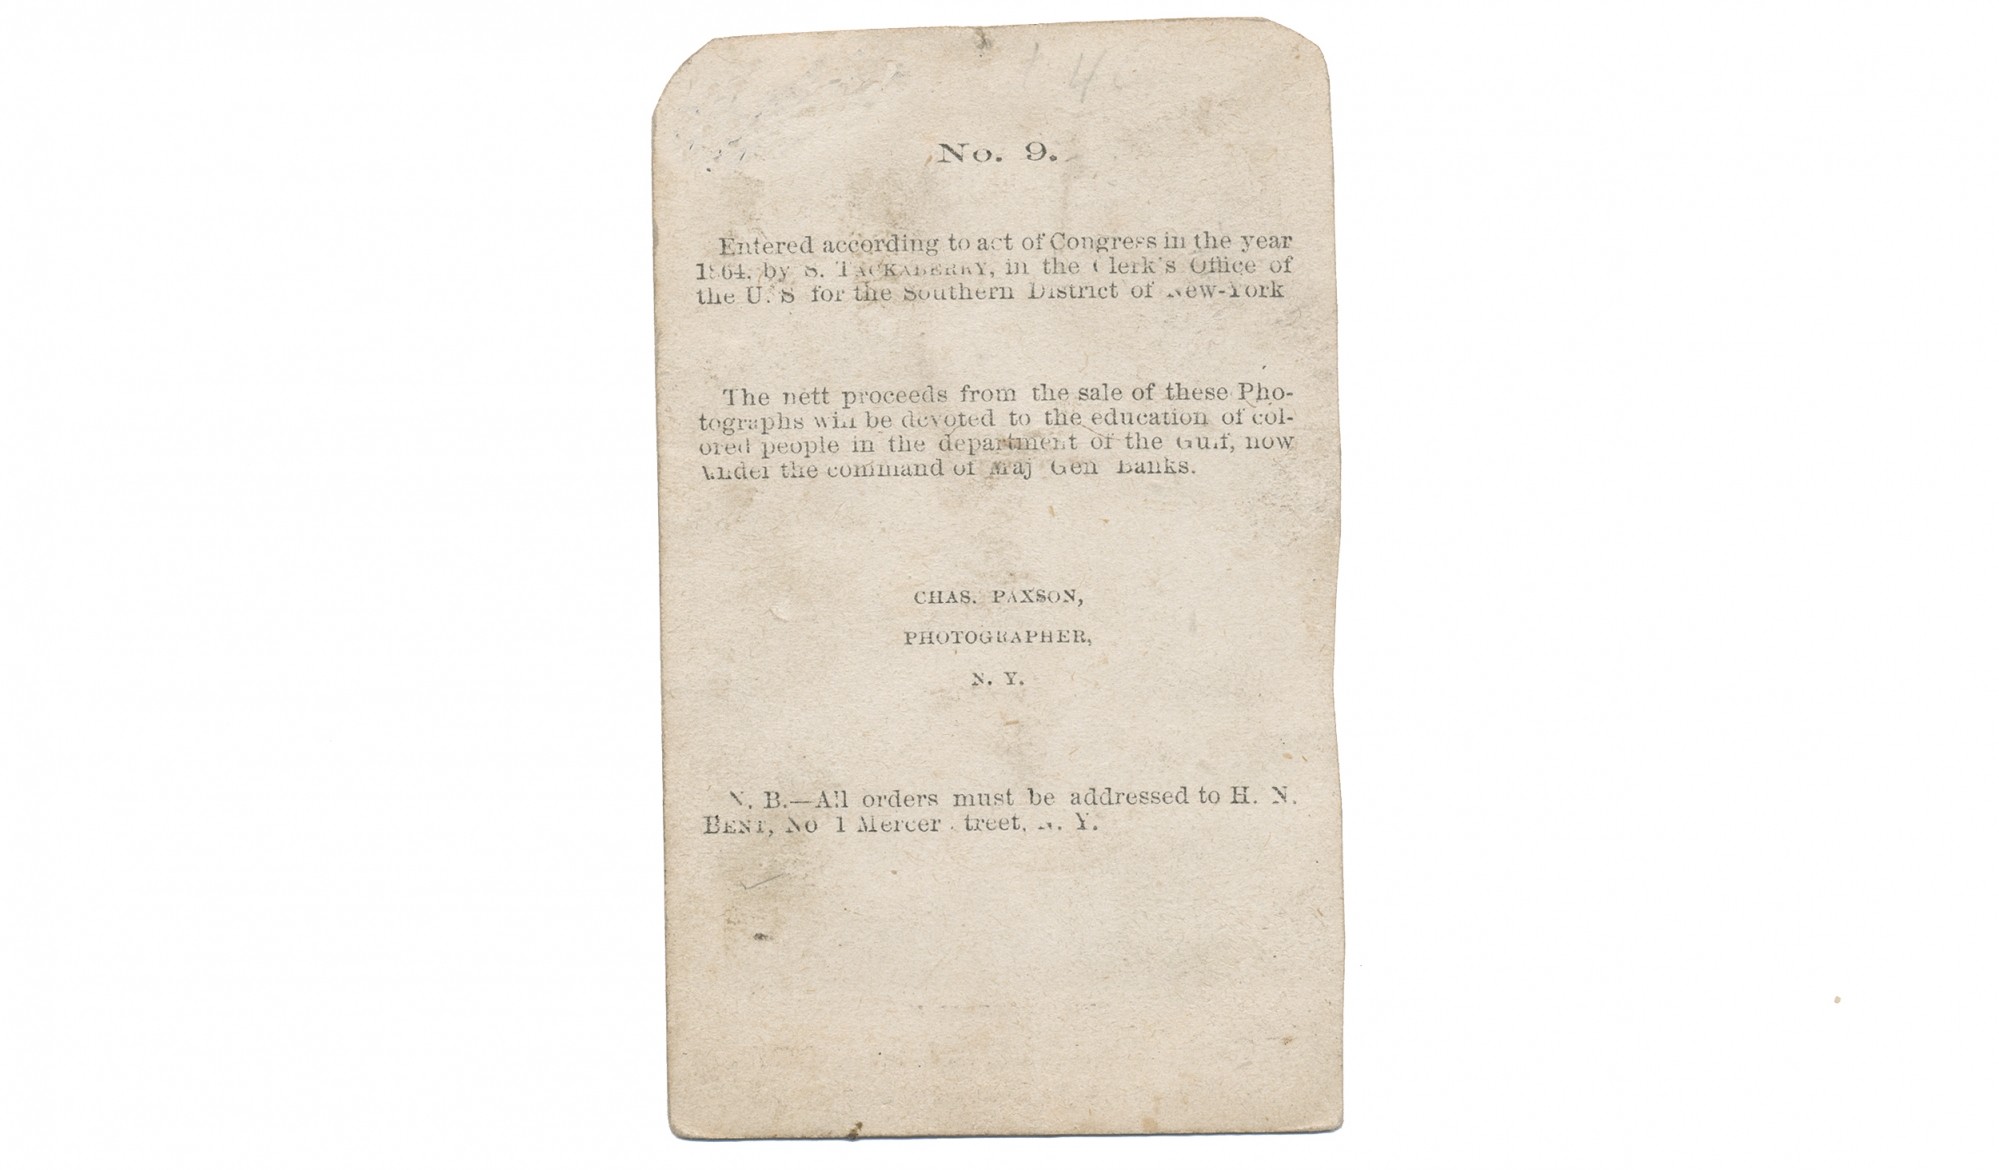 No. 9.
Entered according to act of Congress in the year
1864, by S. TACKABERRY, in the Clerk's Office of
the U. S for the Southern District of New-York
The nett proceeds from the sale of these Pho-
tographs will be devoted to the education of col-
ored people in the department of the Gulf, now
under the command of Maj Gen Banks.
CHAS. PAXSON,
PHOTOGRAPHER,
N. Y.
N. B.—All orders must be addressed to H. N.
BENT, No 1 Mercer Street, N. Y.